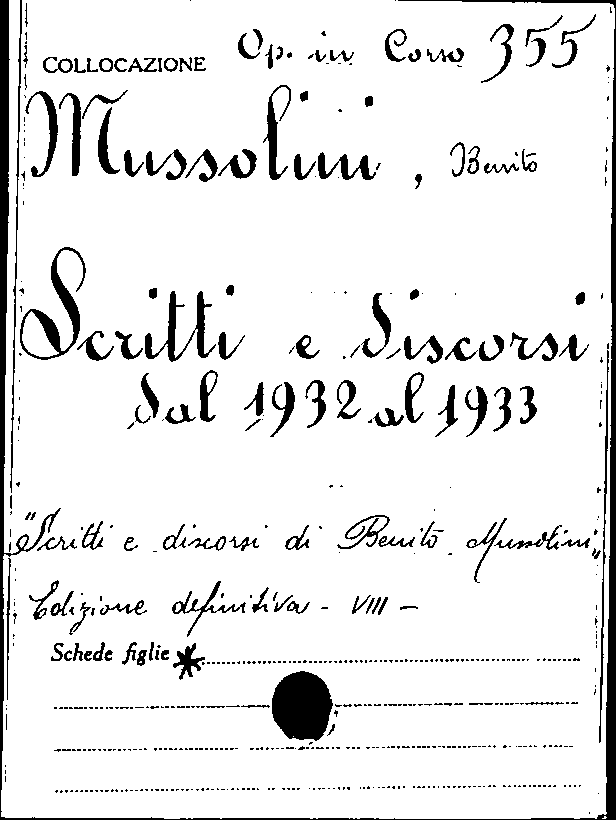 COLLOCAZIONE Op. in Corso 355
Mussolini, Benito
Scritti e discorsi
dal 1932 al 1933
"Scritti e discorsi di Benito Mussolini„
Edizione definitiva - VIII -
Schede figlie *